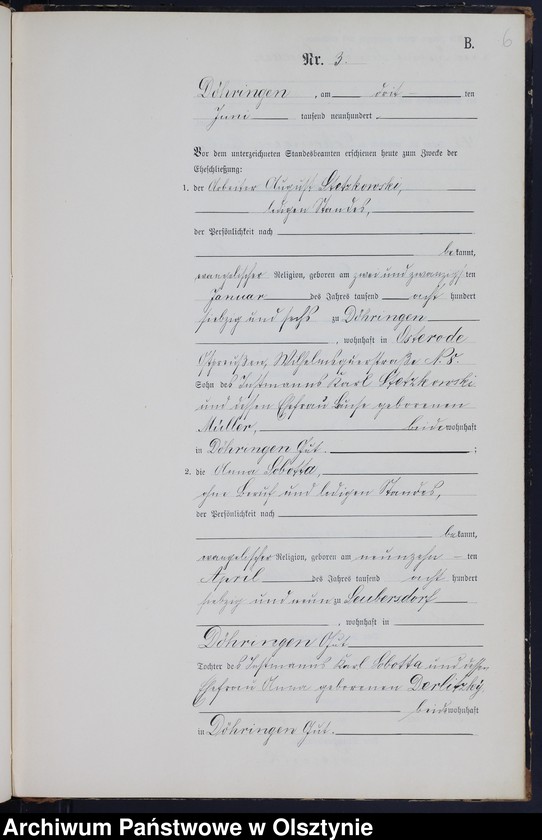 6
B.
Nr. 3.
Döhringen, am drit ten
Juni tausend neunhundert
Vor dem unterzeichneten Standesbeamten erschienen heute zum Zwecke der
Eheschließung:
1. der Arbeiter August Stotzkowski,
ledigen Standes,
der Persönlichkeit nach
bekannt,
evangelischer Religion, geboren am zwei und zwanzigsten
Januar des Jahres tausend acht hundert
siebzig und sechs zu Döhringen
, wohnhaft in Osterode
Ostpreußen, Wilhelmstraße N.
Sohn des Instmanns Karl Stotzkowski
und dessen Ehefrau geborenen
Müller, beide wohnhaft
in Döhringen Gut. ;
2. die Anna Sobotta,
ohne Beruf und ledigen Standes,
der Persönlichkeit nach
bekannt,
evangelischer Religion, geboren am neunzehn ten
April des Jahres tausend acht hundert
siebzig und neun zu Leubersdorf
, wohnhaft in
Döhringen Gut
Tochter des Instmanns Karl Sobotta und dessen
Ehefrau Anna geborenen Derlitzky
beide wohnhaft
in Döhringen Gut.
Archiwum Państwowe w Olsztynie